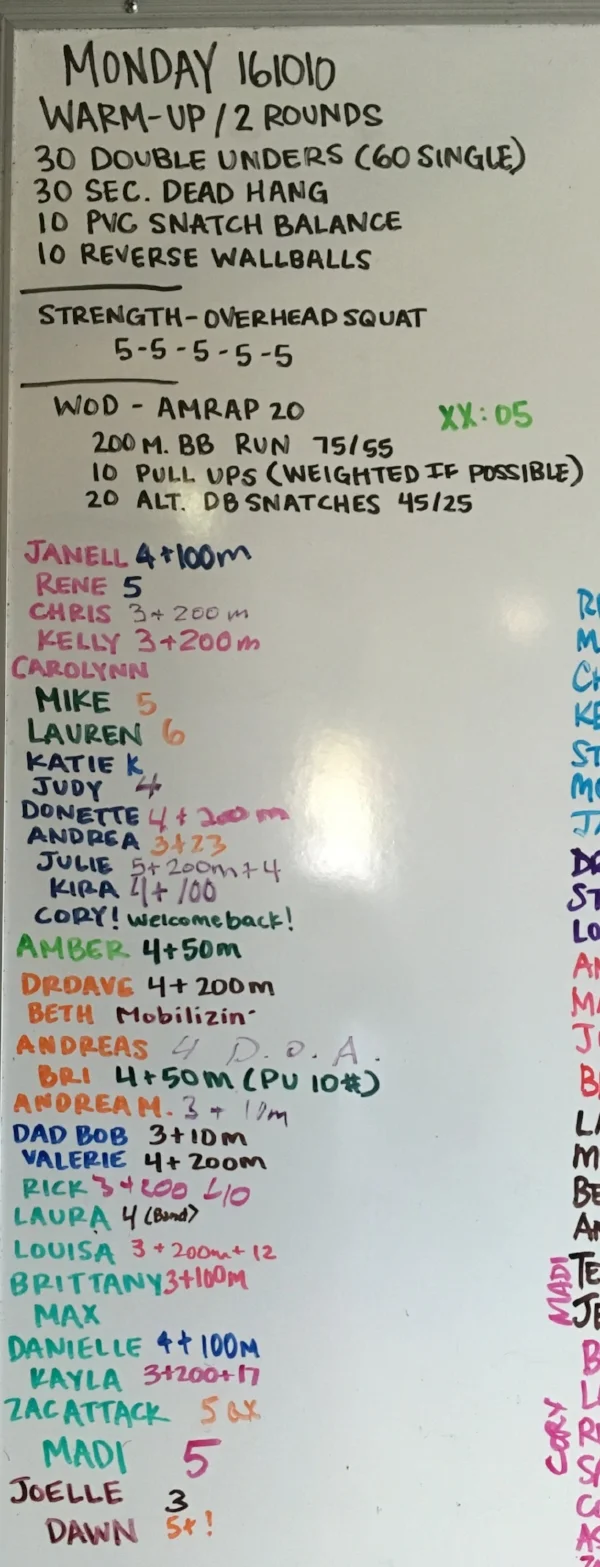 MONDAY 161010
WARM-UP / 2 ROUNDS
30 DOUBLE UNDERS (60 SINGLE)
30 SEC. DEAD HANG
10 PVC SNATCH BALANCE
10 REVERSE WALLBALLS
STRENGTH - OVERHEAD SQUAT
5-5-5-5-5
WOD - AMRAP 20 XX:05
200 M. BB RUN 75/55
10 PULL UPS (WEIGHTED IF POSSIBLE)
20 ALT. DB SNATCHES 45/25
JANELL 4+100m
RENE 5
CHRIS 3+200m
KELLY 3+200m
CAROLYNN
MIKE 5
LAUREN 6
KATIE K
JUDY 4
DONETTE 4+200m
ANDREA 3+23
JULIE 5+200m+4
KIRA 4+100
CORY! Welcome back!
AMBER 4+50m
DRDAVE 4+200m
BETH Mobilizin'
ANDREAS 4 D.O.A.
BRI 4+50M (PU 10#)
ANDREA M. 3+10m
DAD BOB 3+10m
VALERIE 4+200m
RICK 3+200
LAURA 4 (Band)
LOUISA 3+200m+12
BRITTANY 3+100M
MAX
DANIELLE 4+100M
KAYLA 3+200+17
ZAC ATTACK 5
MADI 5
JOELLE 3
DAWN 5+!
MADI
CORY